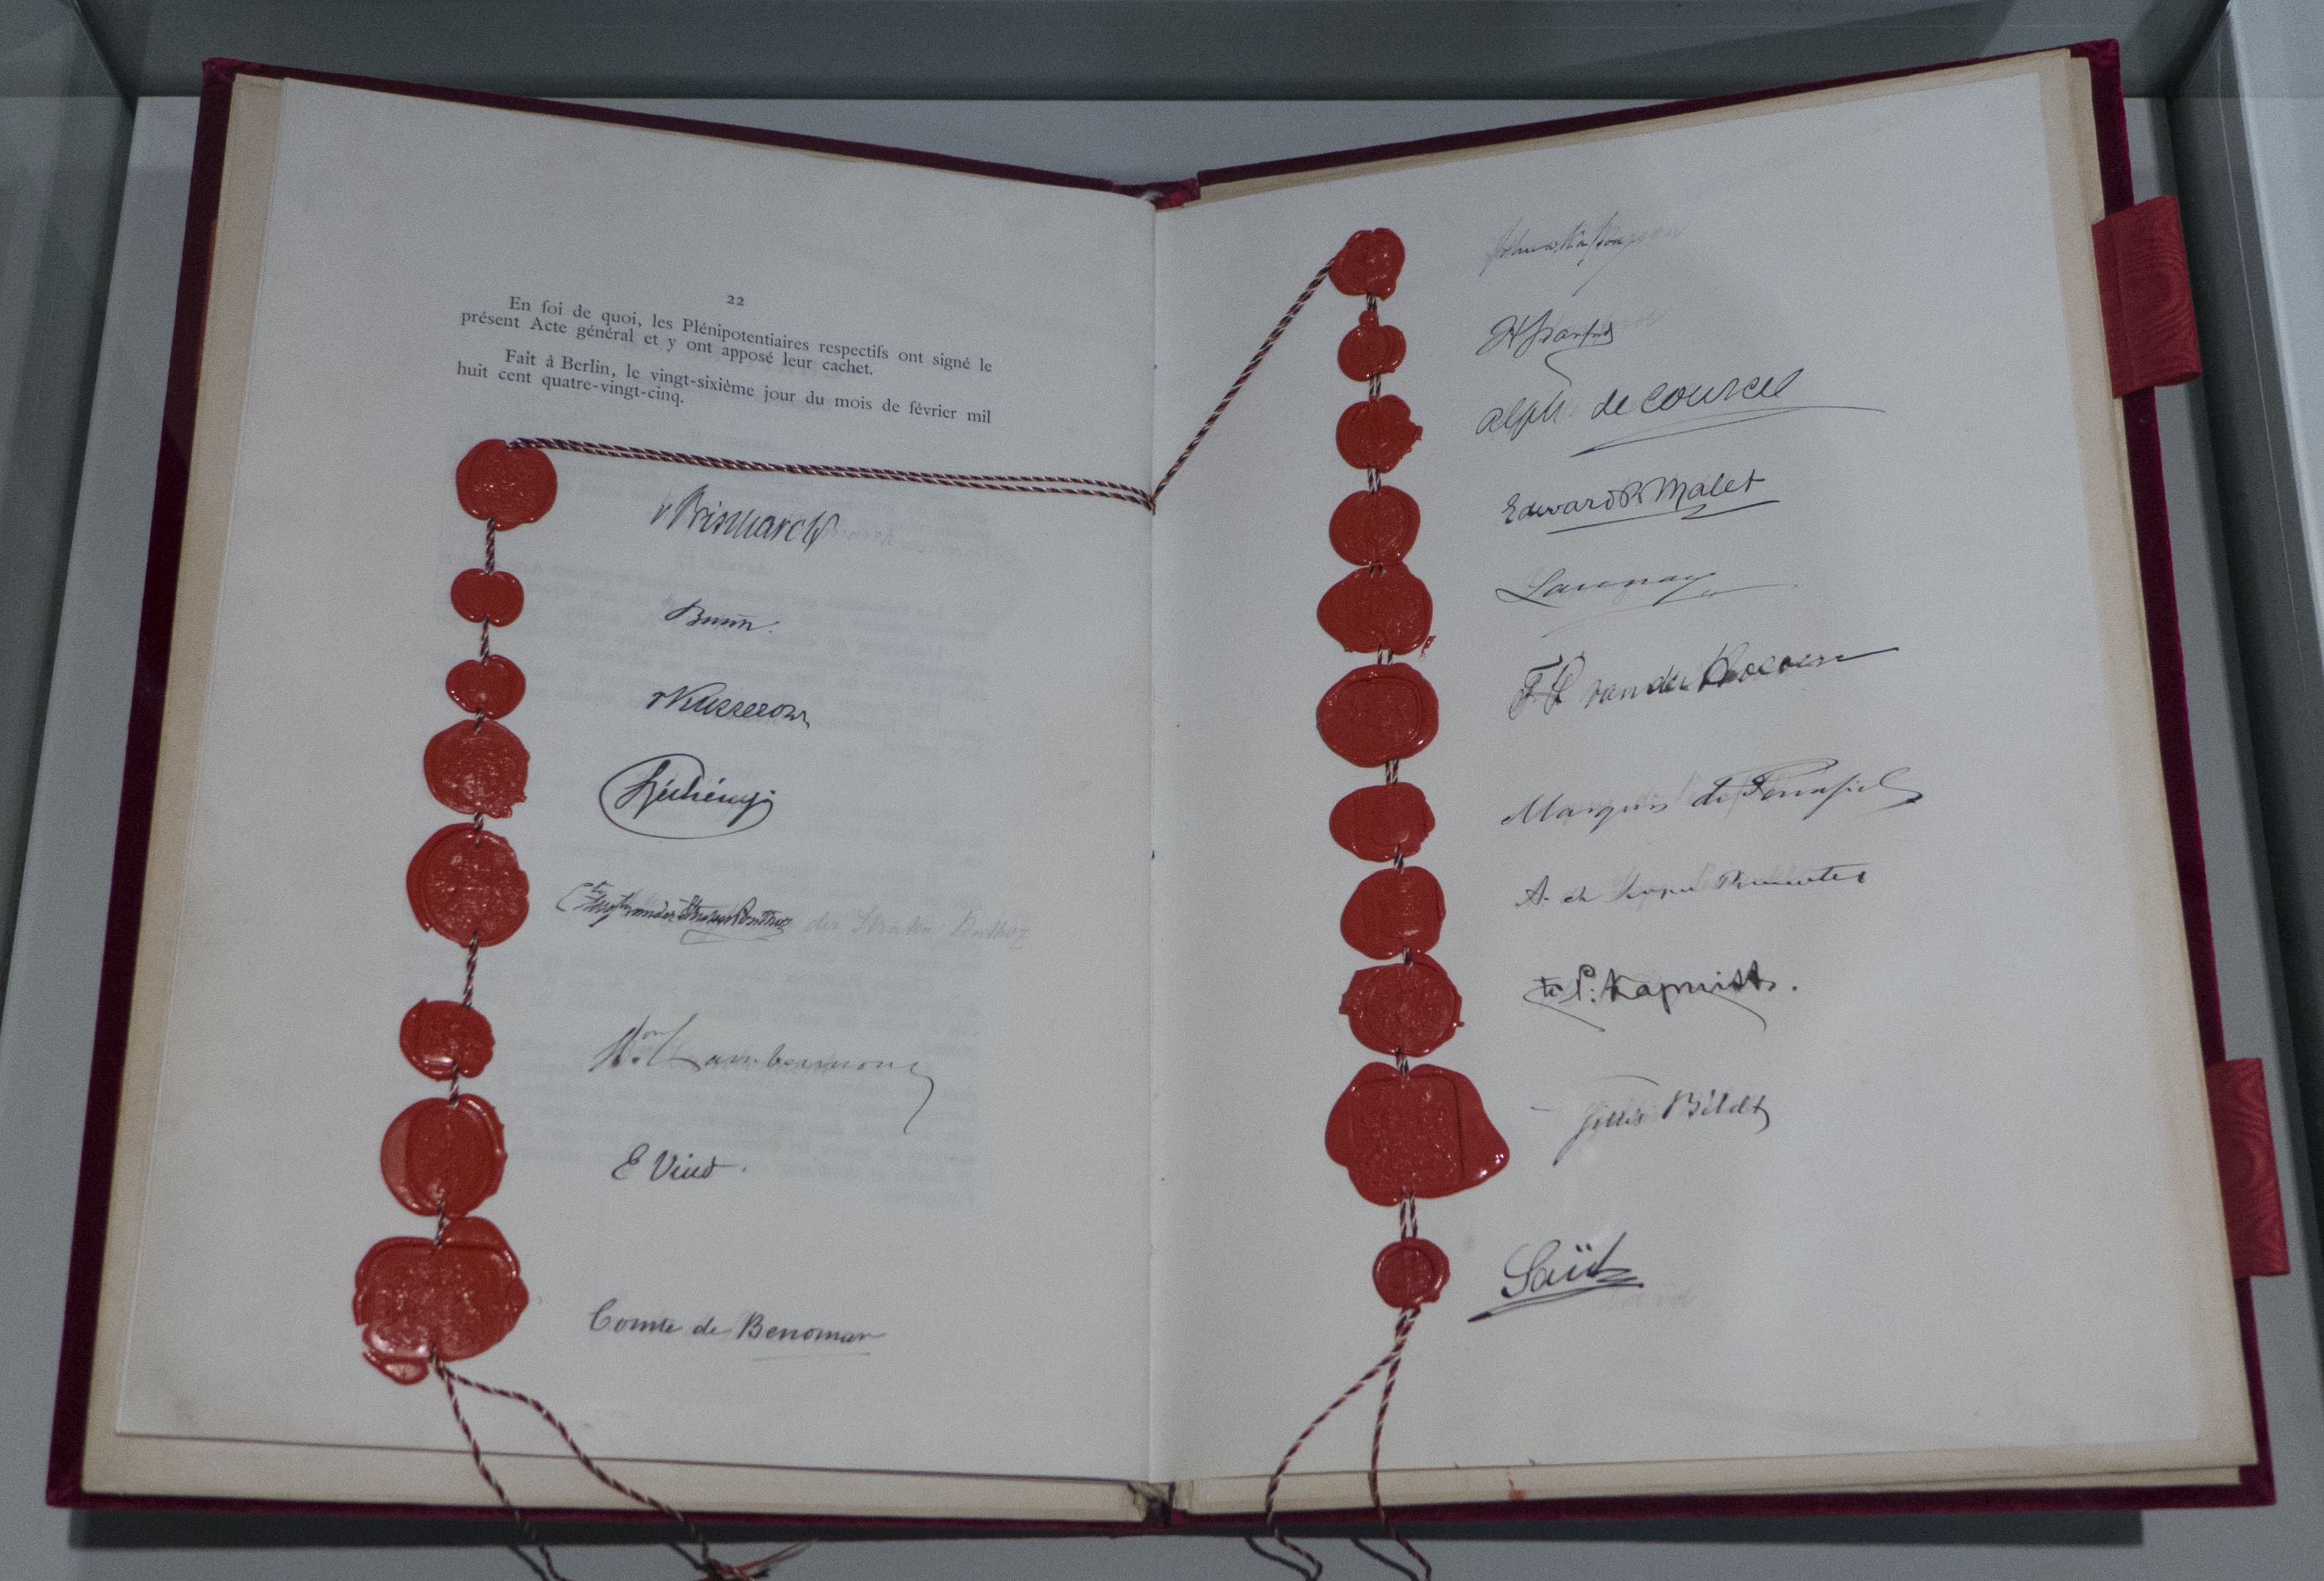 22
En foi de quoi, les Plénipotentiaires respectifs ont signé le
présent Acte général et y ont apposé leur cachet.
Fait à Berlin, le vingt-sixième jour du mois de février mil
huit cent quatre-vingt-cinq.
v Bismarck
Busch.
v Kusserow
Széchényi
Cte Augte van der Straten Ponthoz
Bon Lambermont
E Vind.
Comte de Benomar
John A. Kasson
H S Sanford
Alph de Courcel
Edward B Malet
Launay
F P van der Hoeven
Marquis de Penafiel
A. de Serpa Pimentel
Cte P. Kapnist.
Gillis Bildt
Saïd